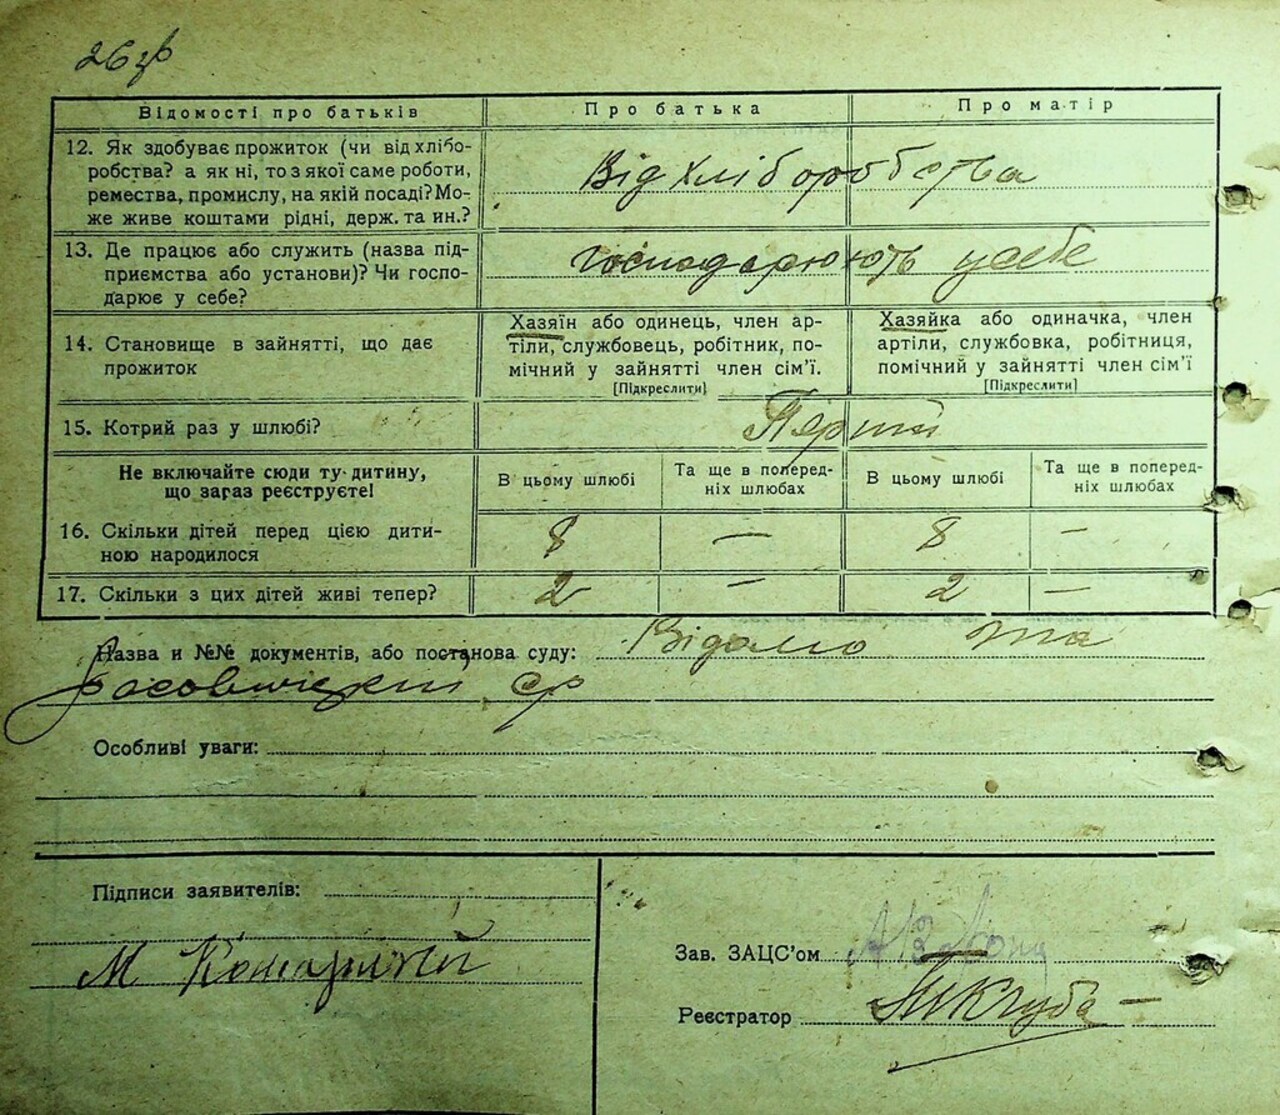 26зв
Відомості про батьків
Про батька
Про матір
12. Як здобуває прожиток (чи від хлібо-
робства? а як ні, то з якої саме роботи,
ремества, промислу, на якій посаді? Мо-
же живе коштами рідні, держ. та ин.?
Від хліборобства
13. Де працює або служить (назва під-
приємства або установи)? Чи госпо-
дарює у себе?
господарюють у себе
14. Становище в зайнятті, що дає
прожиток
Хазяїн або одинець, член ар-
тіли, службовець, робітник, по-
мічний у зайнятті член сім'ї.
[Підкреслити]
Хазяйка або одиначка, член
артіли, службовка, робітниця,
помічний у зайнятті член сім'ї
[Підкреслити]
15. Котрий раз у шлюбі?
Не включайте сюди ту дитину,
що зараз реєструєте!
В цьому шлюбі
Та ще в поперед-
ніх шлюбах
В цьому шлюбі
Та ще в поперед-
ніх шлюбах
16. Скільки дітей перед цією дити-
ною народилося
8 — 8 —
17. Скільки з цих дітей живі тепер?
2 — 2 —
Назва и №№ документів, або постанова суду: Відомо та
Особливі уваги:
Підписи заявителів:
М
Зав. ЗАЦС'ом
Реєстратор